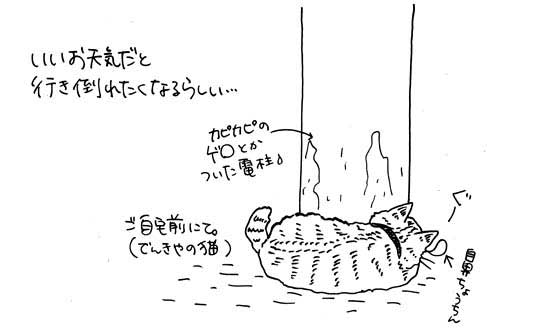 いいお天気だと
行き倒れたくなるらしい…
カピカピの
ゲ○とか
ついた電柱♪
ご自宅前にて。
(でんきやの猫)
ぐ
鼻ちょうちん